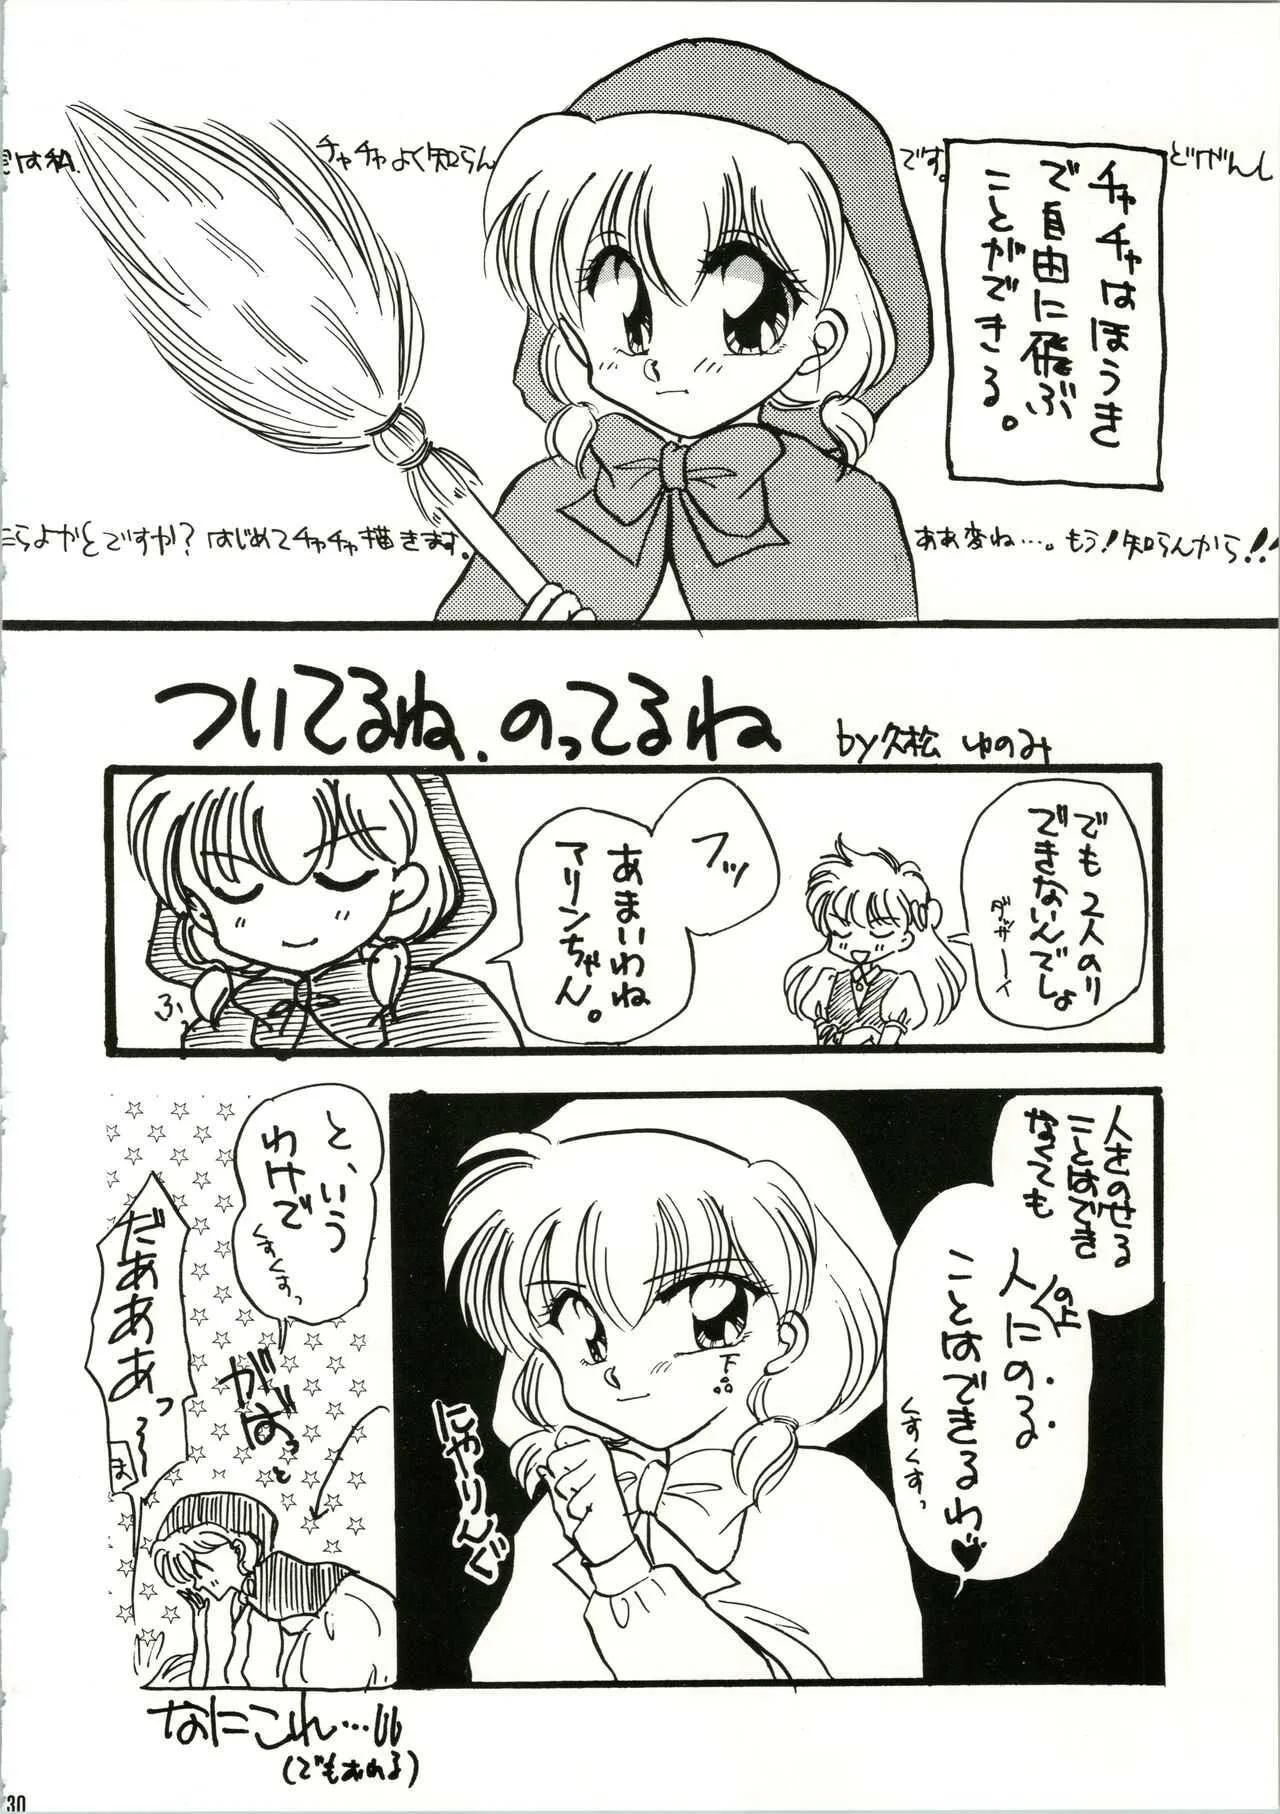 は私
チャチャよく知らん
です。
どげんし
チャチャはほうき
で自由に飛ぶ
ことができる。
たらよかとですか？はじめてチャチャ描きます。
ああ変ね…。もう！知らんから！！
ついてるね、のってるね
by久松 ゆのみ
でも2人のり
できないんでしょ
ダッサーイ
フッ
あまいわね
マリンちゃん。
ふ、
人をのせる
ことはできなくても
人の上にのる
ことはできるわ♥
くすくすっ
下品
にやりんぐ
と、いう
わけで
くすくすっ
がばっと
だぁあぁあっ〜〜
ま
なにこれ…
(でもおわる)
30